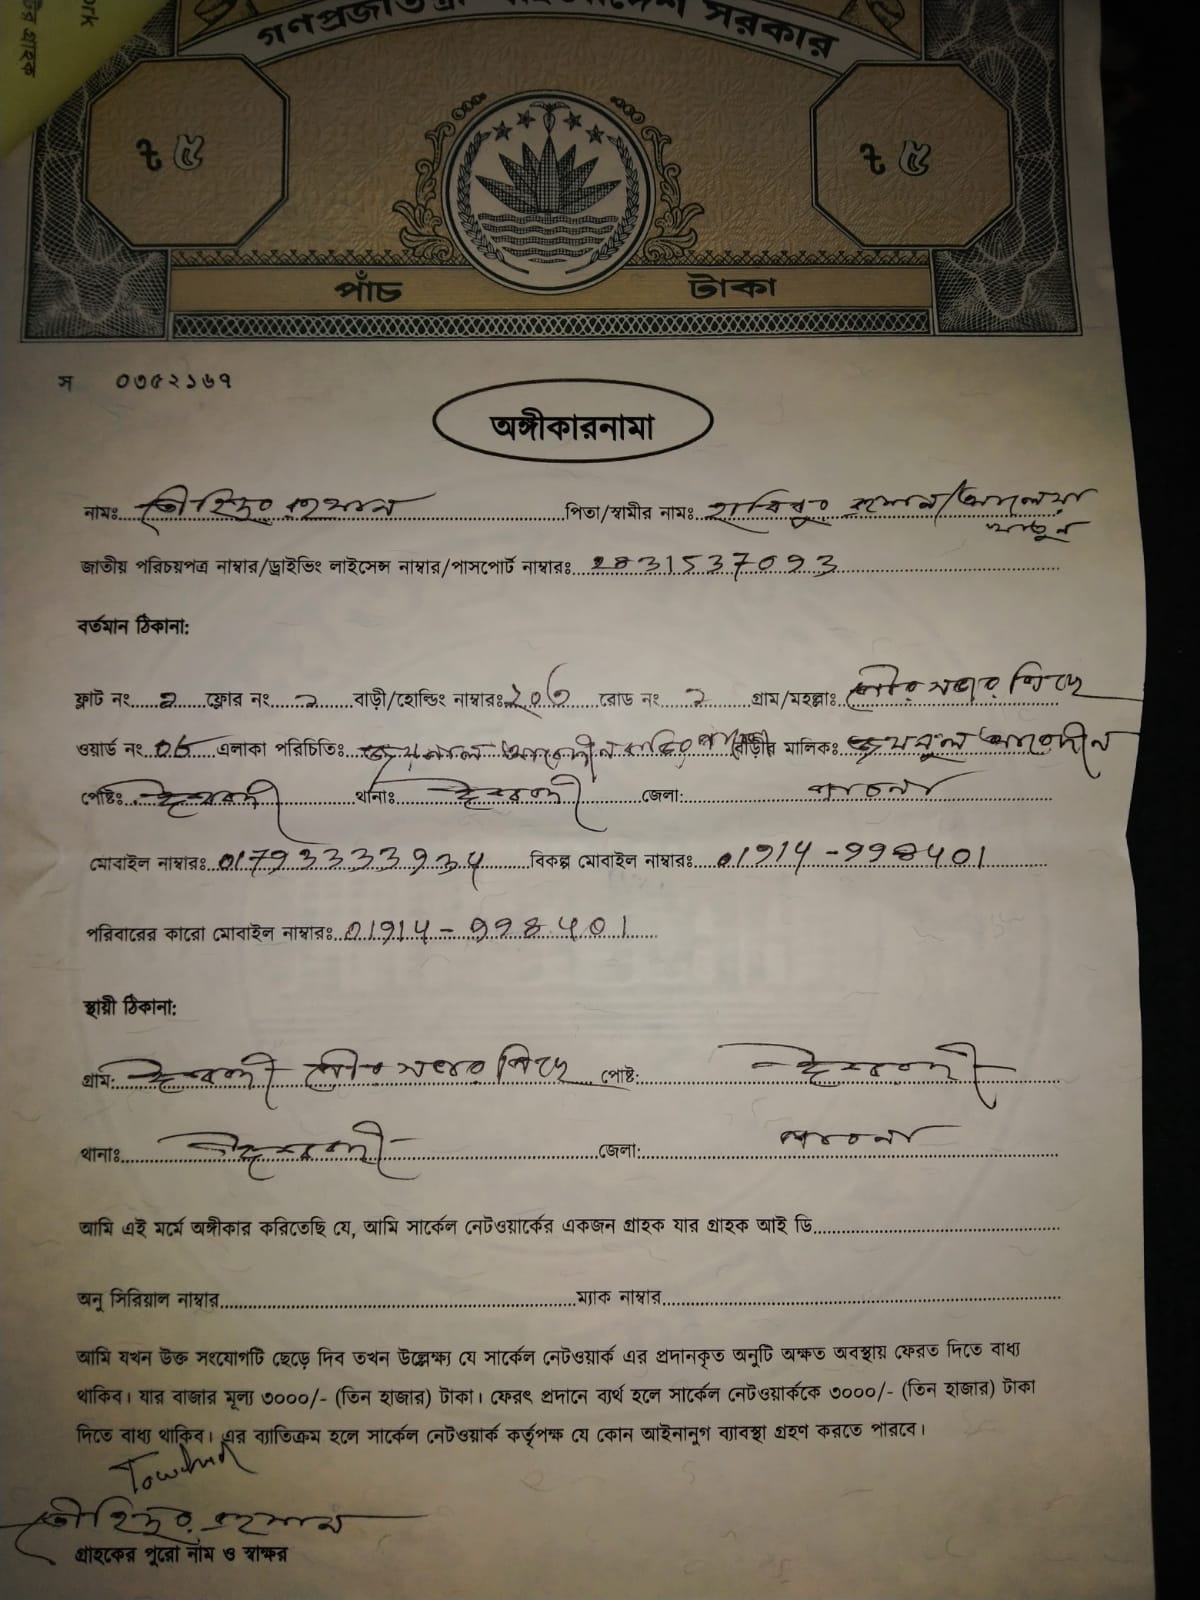 গণপ্রজাতন্ত্রী বাংলাদেশ সরকার
৳ ৫ ৳ ৫
পাঁচ টাকা
স ০৩৫২১৬৭
অঙ্গীকারনামা
নামঃ তৌহিদুর রহমান পিতা/স্বামীর নামঃ হাবিবুর রহমান/আলেয়া
খাতুন
জাতীয় পরিচয়পত্র নাম্বার/ড্রাইভিং লাইসেন্স নাম্বার/পাসপোর্ট নাম্বারঃ 2831537093
বর্তমান ঠিকানা:
ফ্লাট নং ২ ফ্লোর নং ২ বাড়ী/হোল্ডিং নাম্বারঃ রোড নং ২ গ্রাম/মহল্লাঃ
ওয়ার্ড নং 06 এলাকা পরিচিতিঃ জয়নাল আবেদীন বাড়ীর মালিকঃ জয়নুল আবেদীন
পোষ্টঃ ঈশ্বরদী থানাঃ ঈশ্বরদী জেলা: পাবনা
মোবাইল নাম্বারঃ বিকল্প মোবাইল নাম্বারঃ 01914-998401
পরিবারের কারো মোবাইল নাম্বারঃ 01914-998401
স্থায়ী ঠিকানা:
গ্রাম: ঈশ্বরদী পোষ্ট: ঈশ্বরদী
থানাঃ ঈশ্বরদী জেলা: পাবনা
আমি এই মর্মে অঙ্গীকার করিতেছি যে, আমি সার্কেল নেটওয়ার্কের একজন গ্রাহক যার গ্রাহক আই ডি
অনু সিরিয়াল নাম্বার ম্যাক নাম্বার
আমি যখন উক্ত সংযোগটি ছেড়ে দিব তখন উল্লেক্ষ্য যে সার্কেল নেটওয়ার্ক এর প্রদানকৃত অনুটি অক্ষত অবস্থায় ফেরত দিতে বাধ্য
থাকিব। যার বাজার মূল্য ৩০০০/- (তিন হাজার) টাকা। ফেরৎ প্রদানে ব্যর্থ হলে সার্কেল নেটওয়ার্ককে ৩০০০/- (তিন হাজার) টাকা
দিতে বাধ্য থাকিব। এর ব্যাতিক্রম হলে সার্কেল নেটওয়ার্ক কর্তৃপক্ষ যে কোন আইনানুগ ব্যাবস্থা গ্রহণ করতে পারবে।
Towhid
তৌহিদুর রহমান
গ্রাহকের পুরো নাম ও স্বাক্ষর